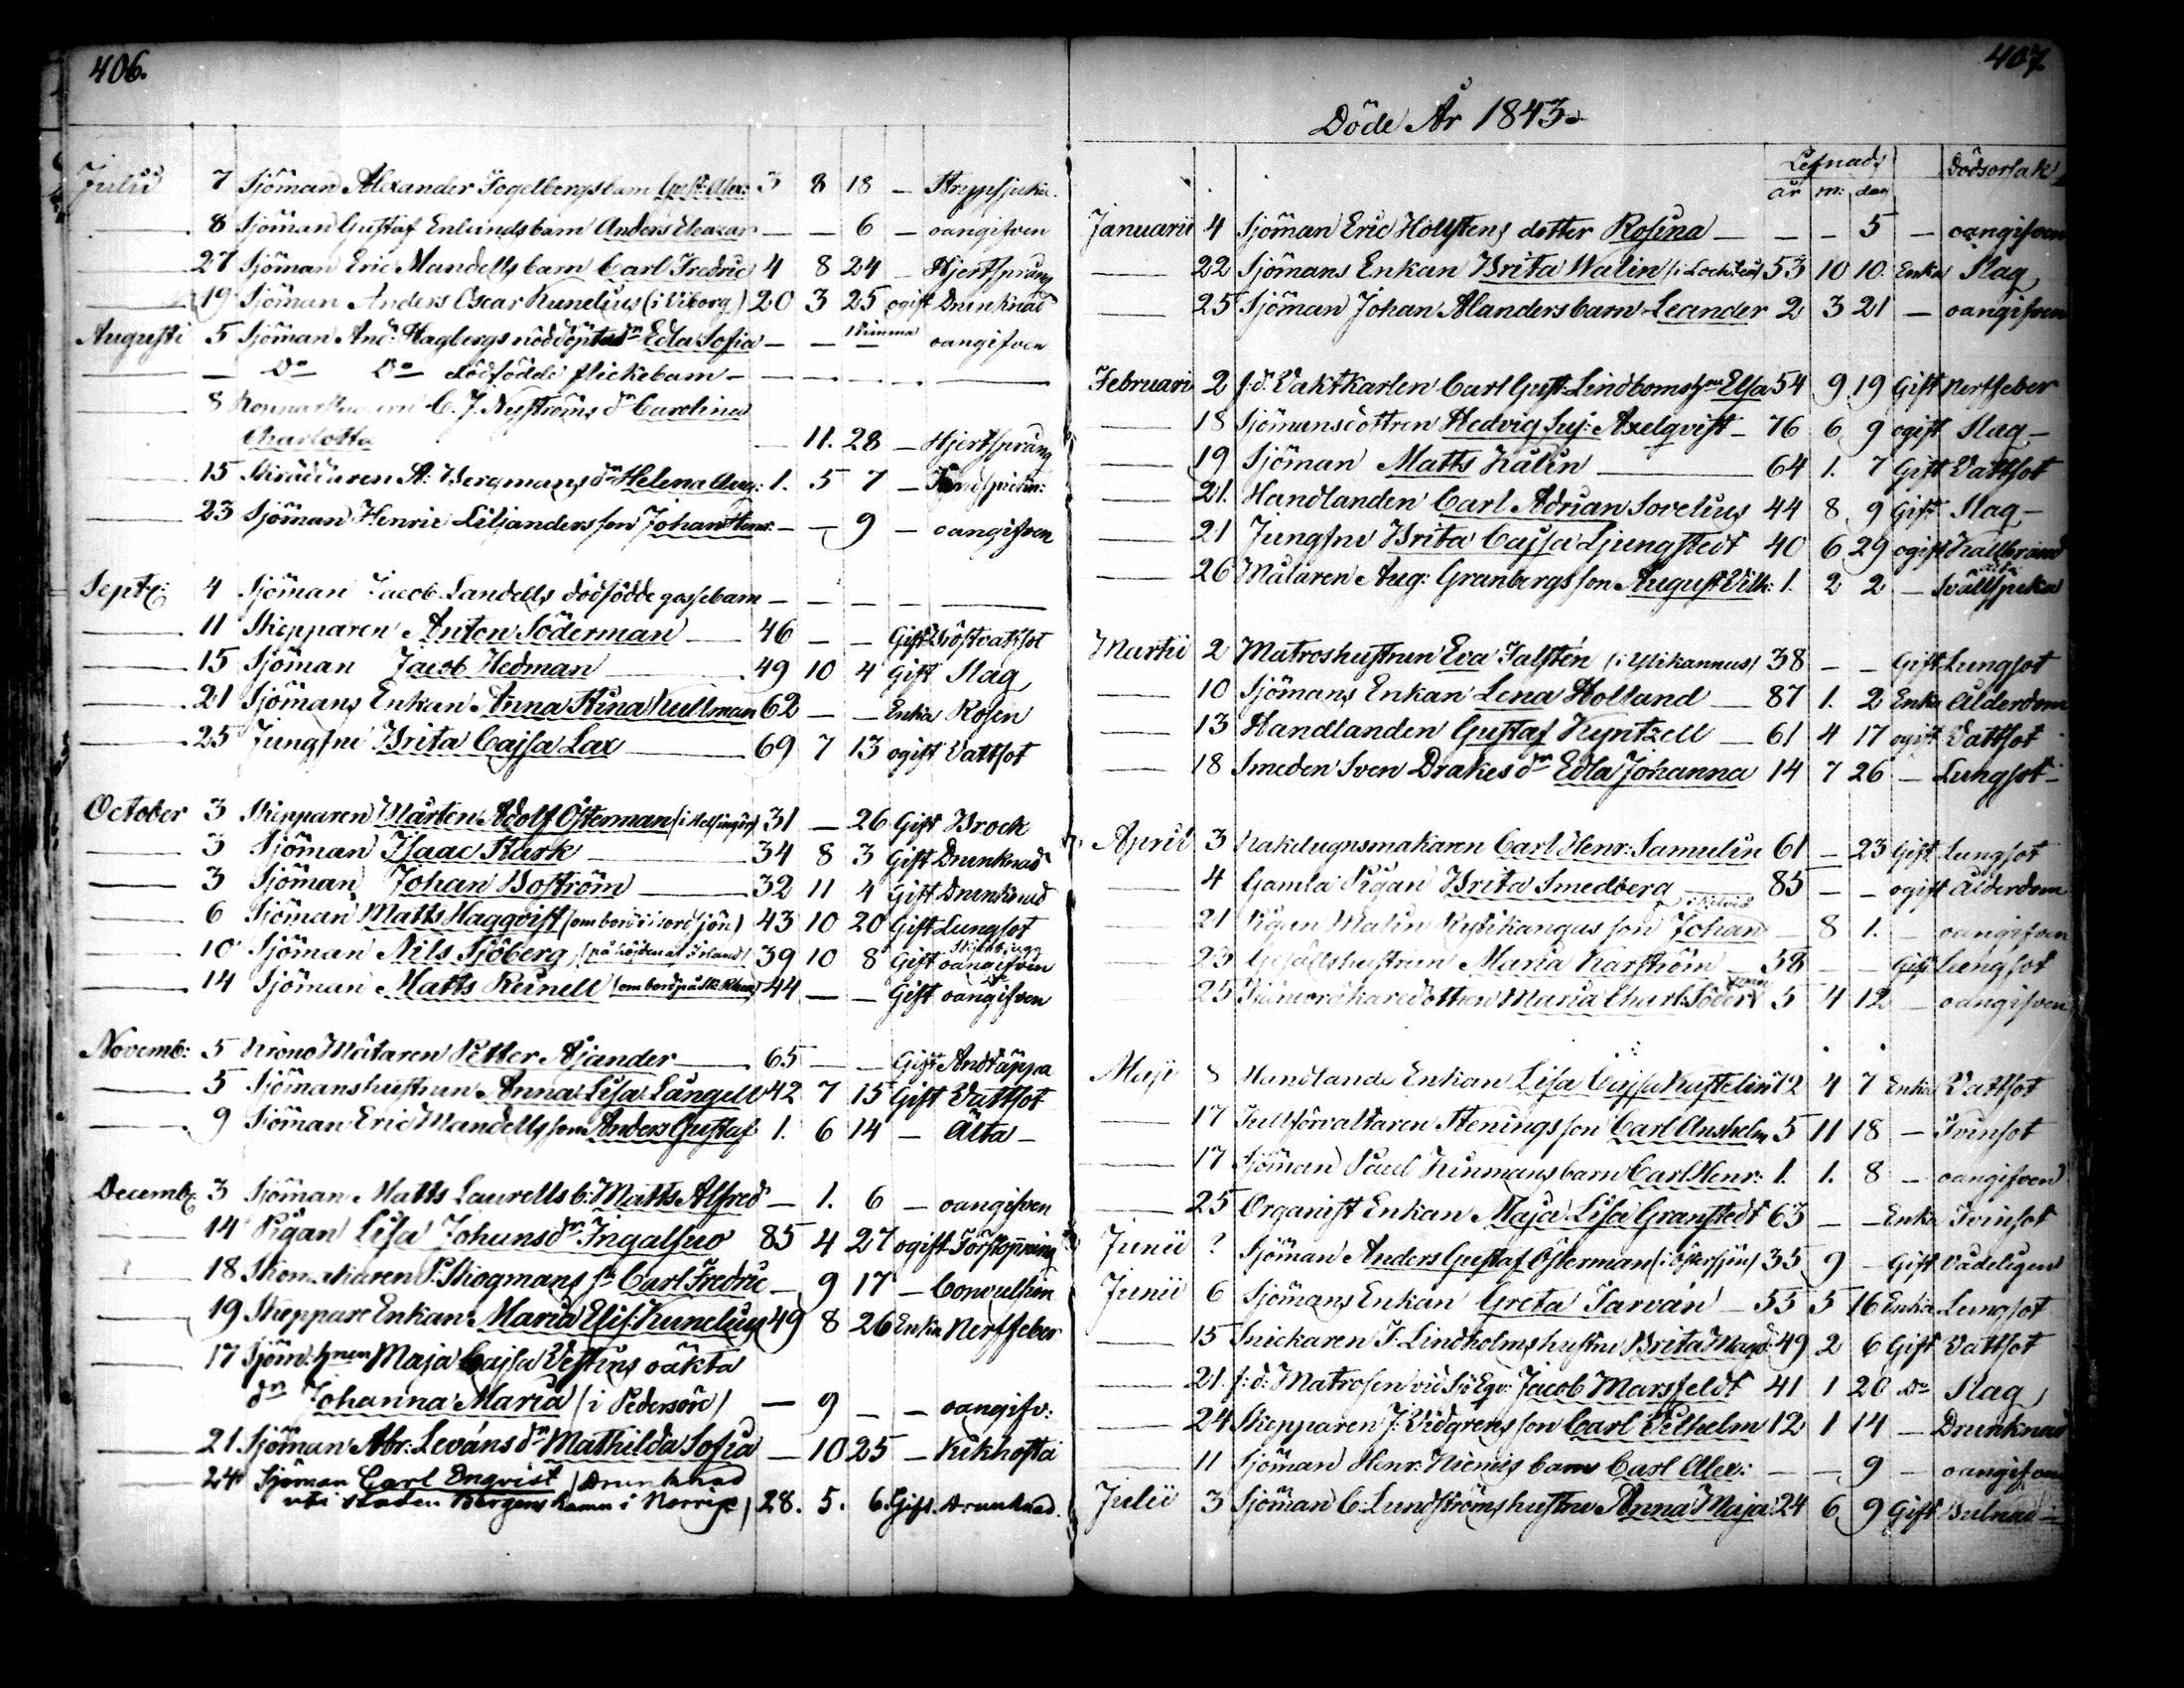 406.
Julii 7 Sjöman Alexander Fogelbergs barn Gust: Alex: 3 8 18 — Strypsjuka.
— 8 Sjöman Gustaf Enlunds barn Anders Eleazar — — 6 — oangifven
— 27 Sjöman Eric Mandells barn Carl Fredric 4 8 24 — Hjertsprång
— 19 Sjöman Anders Oscar Kunelius (i Viborg) 20 3 25 ogift Drunknad
Augusti 5 Sjöman And: Hagbergs nöddöpta dr Edla Sofia — — 1 timma oangifven
— — Do Do dödfödde flickebarn — — — — —
— 8 C. J. Nyströms dr Carolina
Charlotta — 11. 28 — Hjertsprång
— 15 Skräddaren A: Bergmans dr Helena Aug: 1. 5 7 —
— 23 Sjöman Henric Liljanders son Johan Henr: — — 9 — oangifven
Septe: 4 Sjöman Jacob Sandells dödfödde gossebarn — — — — —
— 11 Skepparen Anton Söderman — 46 — — Gift Bröstvattsot
— 15 Sjöman Jacob Hedman — 49 10 4 Gift Slag
— 21 Sjömans Enkan Anna Stina Kullman 62 — — Enka Rosen
— 25 Jungfru Brita Cajsa Lax — 69 7 13 ogift Vattsot
October 3 Skepparen Mårten Adolf Österman (i Helsingör) 31 — 26 Gift Brock
— 3 Sjöman Isaac Stark — 34 8 3 Gift Drunknad
— 3 Sjöman Johan Boström — 32 11 4 Gift Drunknad
— 6 Sjöman Matts Hagqvist (om bord i Nordsjön) 43 10 20 Gift Lungsot
— 10 Sjöman Nils Sjöberg, (på höjden af Irland) 39 10 8 Gift oangifven
— 14 Sjöman Matts Renell (om bord på Sk. ) 44 — — Gift oangifven
Novemb: 5 Krono Mätaren Petter Ajander — 65 — — Gift Andtäppa
— 5 Sjömanshustrun Anna Lisa Långell 42 7 15 Gift Vattsot
— 9 Sjöman Eric Mandells son Anders Gustaf 1. 6 14 — Älta —
Decemb: 3 Sjöman Matts Laurells b: Matts Alfred — 1. 6 — oangifven
— 14 Pigan Lisa Johans dr Ingalsuo 85 4 27 ogift Förstoppning
18 Skomakaren P. Skogmans sn Carl Fredric — 9 17 — Convulsion
— 19 Skeppare Enkan Maria Elis: Kunelius 49 8 26 Enka Nertfeber
— 17 Sjöm: hnen Maja Cajsa Vestins oäkta
dr Johanna Maria (i Pedersöre) — 9 — — oangifv:
— 21. Sjöman Abr: Leváns dr Mathilda Sofia — 10 25 — Kikhosta
— 24 Sjöman Carl Enqvist (Drunknad
uti staden Bergens hamn i Norrige) 28. 5. 6. Gift. Drunknad.
407.
Döde År 1843.
Lefnads Dödsorsak
år m: dag
Januarii 4 Sjöman Eric Holstens dotter Rosina — — — 5 — oangifven
— 22 Sjömans Enkan Brita Walin (i Lochteå) 53 10 10. Enka Slag
— 25 Sjöman Johan Alanders barn Leander 2 3 21 — oangifven
Februari 2 f: d: Vaktkarlen Carl Gust: Lindboms hu Elsa 54 9 19 Gift Nertfeber
— 18 Sjömansdottren Hedvig Sus: Axelqvist — 76 6 9 ogift Slag —
— 19 Sjöman Matts Kålin — 64 1. 7 Gift Vattsot
— 21. Handlanden Carl Adrian Sovelius 44 8 9 Gift Slag —
— 21 Jungfru Brita Cajsa Ljungstedt 40 6 29 ogift Kallbrand
— 26 Målaren Aug: Granbergs son August Vilh: 1. 2 2 —
Martii 2 Matroshustrun Eva Falstén (i Ylikannus) 38 — — Gift Lungsot
— 10 Sjömans Enkan Lena Holland — 87 1. 2 Enka Ålderdom
— 13 Handlanden Gustaf Kyntzell — 61 4 17 ogift Vattsot
— 18 Smeden Sven Drakes dr Edla Johanna 14 7 26 — Lungsot —
April 3 Kakelugnsmakaren Carl Henr: Samulin 61 — 23 Gift Lungsot
— 4 Gamla Pigan Brita Smedberg — 85 — — ogift Ålderdom
— 21 Pigan Malin Rytikangas son Johan — 8 1. — oangifven
— 23 Gesällshustrun Maria Karström — 58 — — Gift Lungsot
— 25 dottren Maria Charl: Söder 5 4 12 — oangifven
Maji 8 Handlande Enkan Lisa Cajsa Kastelin 72 4 7 Enka Vattsot
— 17 Tullförvaltaren Stenings son Carl Anshelm 5 11 18 — Tvinsot
— 17 Sjöman Paul Kinmans barn Carl Henr: 1. 1. 8 — oangifven
— 25 Organist Enkan Maja Lisa Granstedt 63 — — Enka Tvinsot
Junii ? Sjöman Anders Gustaf Österman (i Östersjön) 35 9 — Gift Vådeligen
Junii 6 Sjömans Enkan Greta Sarván — 55 5 16 Enka Lungsot
— 15 Snickaren J. Lindholms hustru Brita Magd: 49 2 6 Gift Vattsot
— 21. f: d: Matrosen vid Sjö Eqv: Jacob Marsfeldt 41 1 20 Do Slag
— 24 Skepparen J: Vidgrens son Carl Vilhelm 12 1 14 — Drunknad
— 11 Sjöman Henr: Niemis barn Carl Alex: — — 9 — oangifven
Julii 3 Sjöman C: Lundströms hustru Anna Maja 24 6 9 Gift Bulnad —